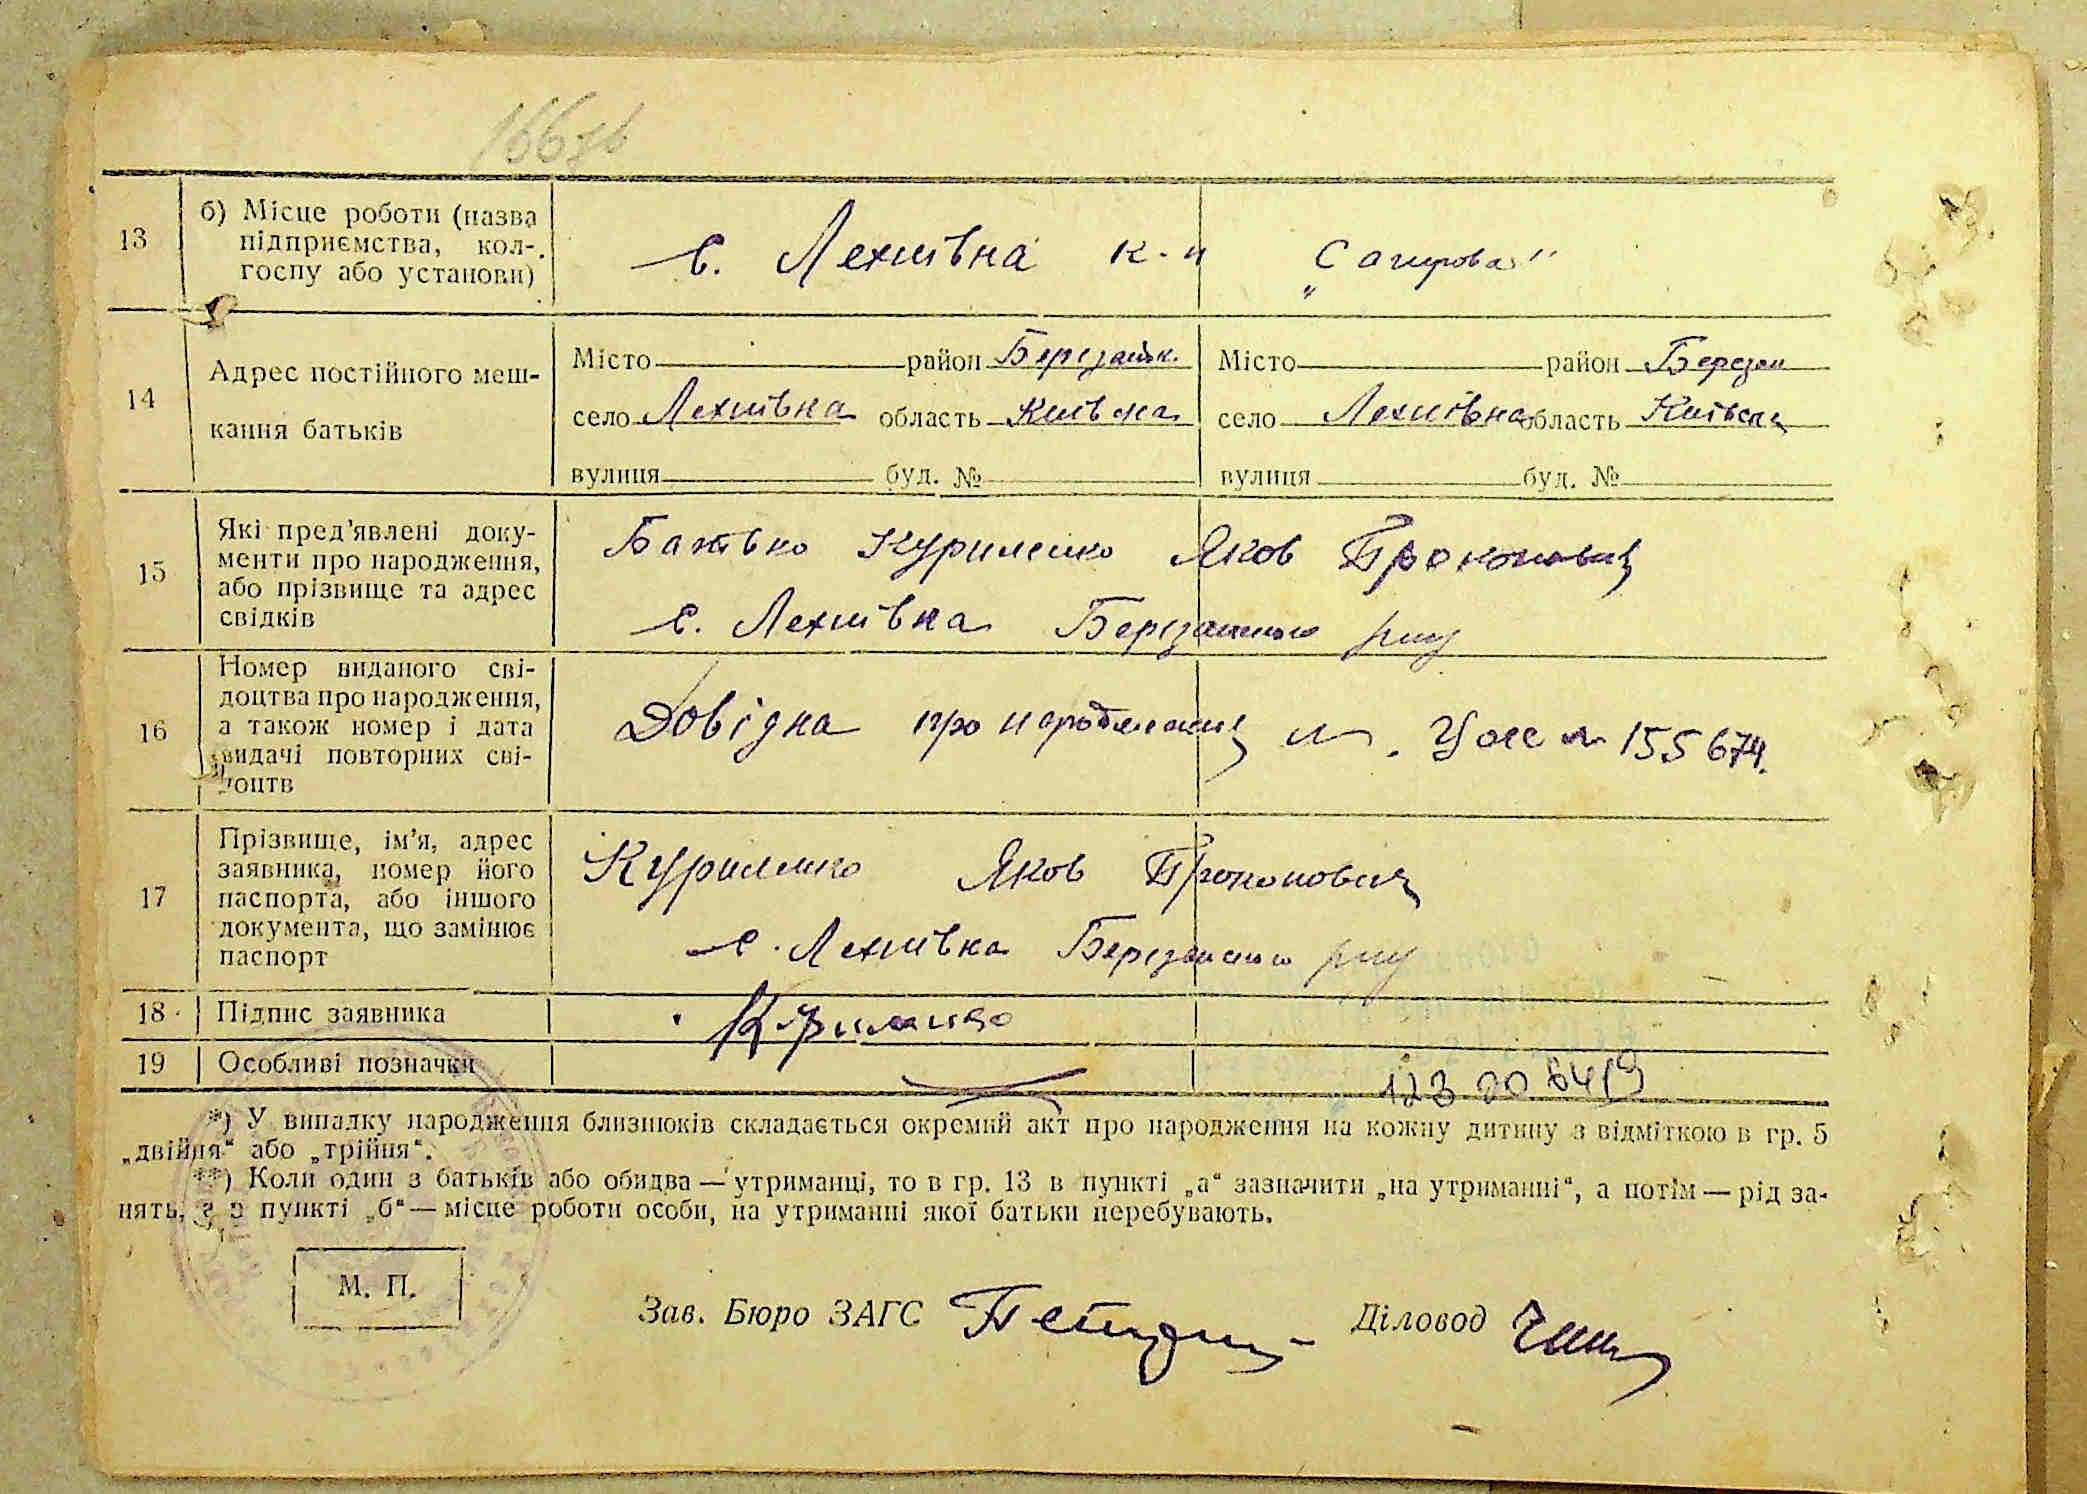 166зв
13
б) Місце роботи (назва
підприємства, кол-
госпу або установи)
с. Лехнівка к-п
14
Адрес постійного меш-
кання батьків
Місто район Березанськ.
село Лехнівка область Київська
вулиця буд. №
Місто район Березан
село Лехнівка область Київська
вулиця буд. №
15
Які пред'явлені доку-
менти про народження,
або прізвище та адрес
свідків
Батько Куриленко Яков Прокопович
с. Лехнівка Березанського р-ну
16
Номер виданого сві-
доцтва про народження,
а також номер і дата
видачі повторних сві-
доцтв
Довідка про народження 155674.
17
Прізвище, ім'я, адрес
заявника, номер його
паспорта, або іншого
документа, що замінює
паспорт
Куриленко Яков Прокопович
с. Лехнівка Березанського р-ну
18
Підпис заявника
Куриленко
19
Особливі позначки
*) У випадку народження близнюків складається окремий акт про народження на кожну дитину з відміткою в гр. 5
„двійня“ або „трійня“.
**) Коли один з батьків або обидва — утриманці, то в гр. 13 в пункті „а“ зазначити „на утриманні“, а потім — рід за-
нять, а в пункті „б“ — місце роботи особи, на утриманні якої батьки перебувають.
М. П.
Зав. Бюро ЗАГС
Діловод